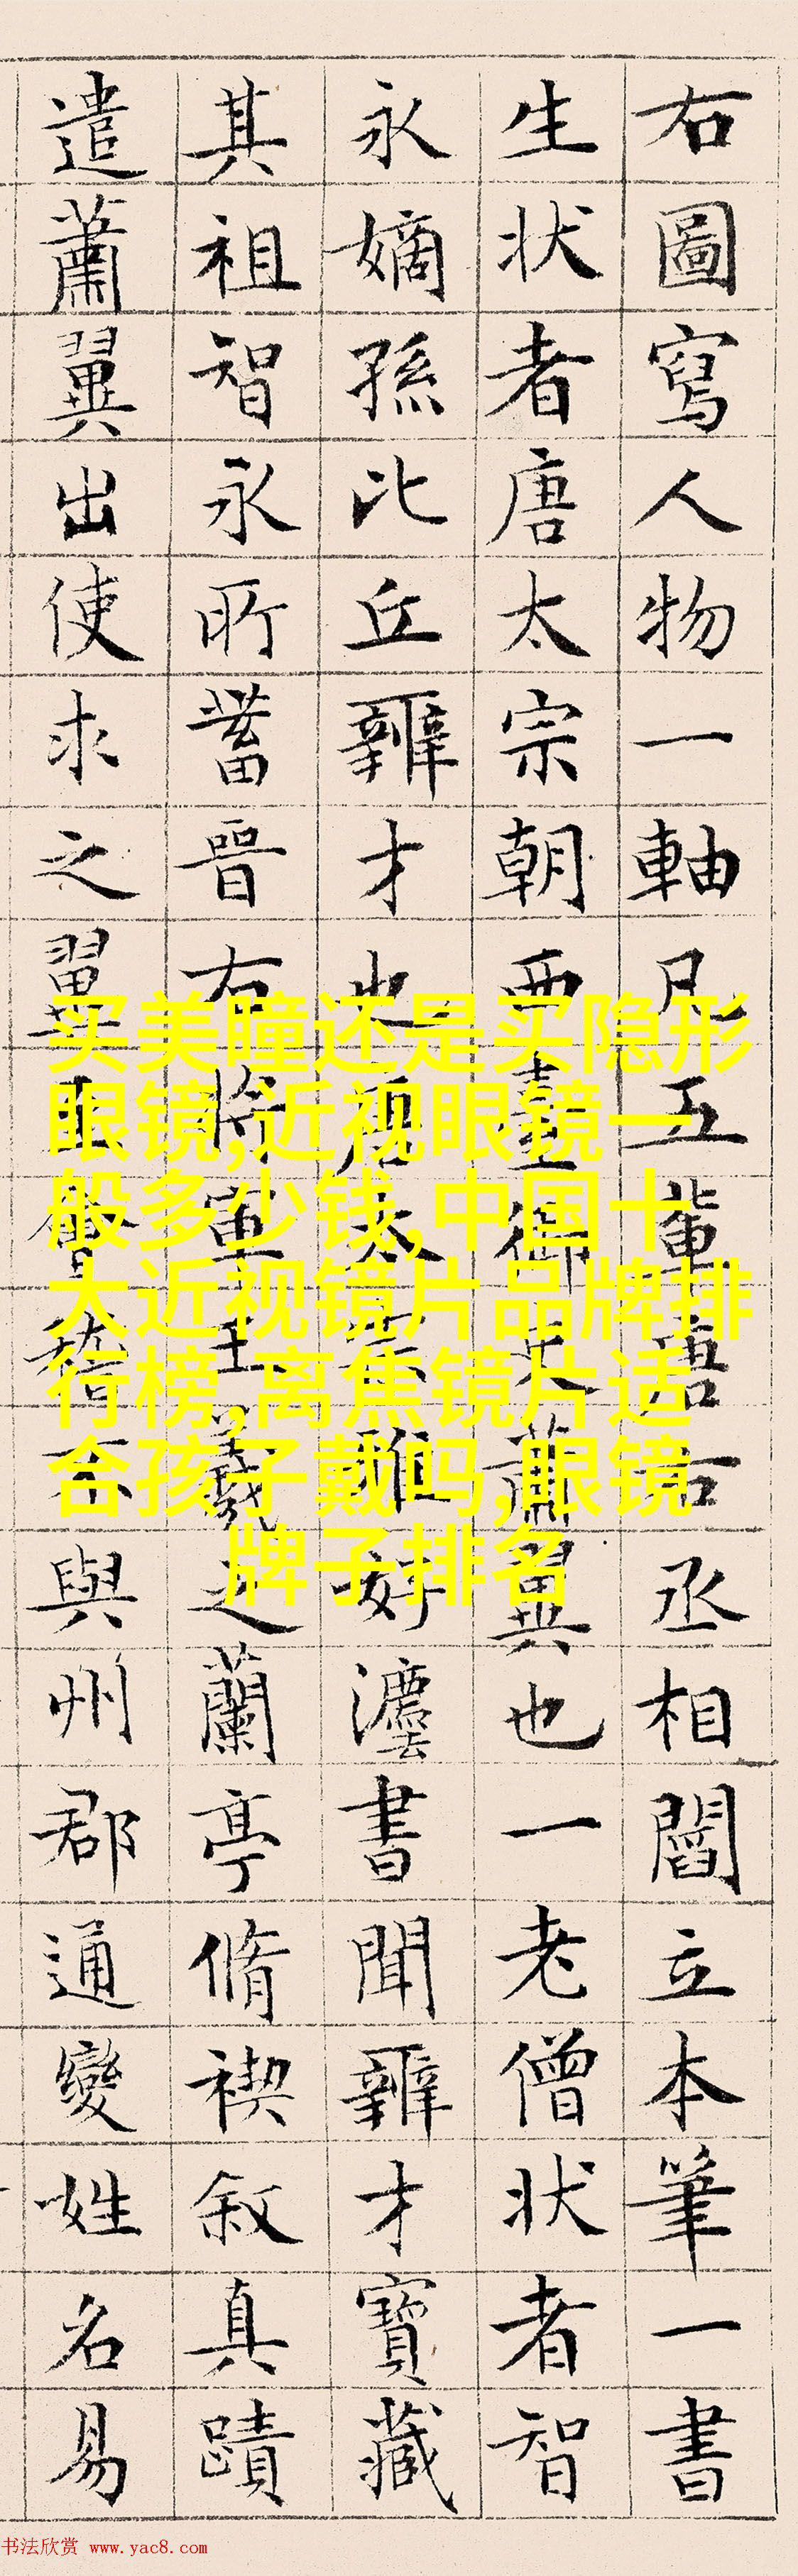 右圖寫人物一軸凡五輩唐右丞相閻立本筆一書
生状者唐太宗朝西臺御史蕭翼也一老僧状者智
永嫡孫比丘辯才也唐太宗雅好灋書聞辯才寶藏
其祖智永所蓄晉右將軍王羲之蘭亭脩禊叙真蹟
遣蕭翼出使求之翼至會稽不與州郡通變姓名易
买美瞳还是买隐形
眼镜,近视眼镜一
般多少钱,中国十
大近视镜片品牌排
行榜,离焦镜片适
合孩子戴吗,眼镜
牌子排名
书法欣赏 www.yac8.com